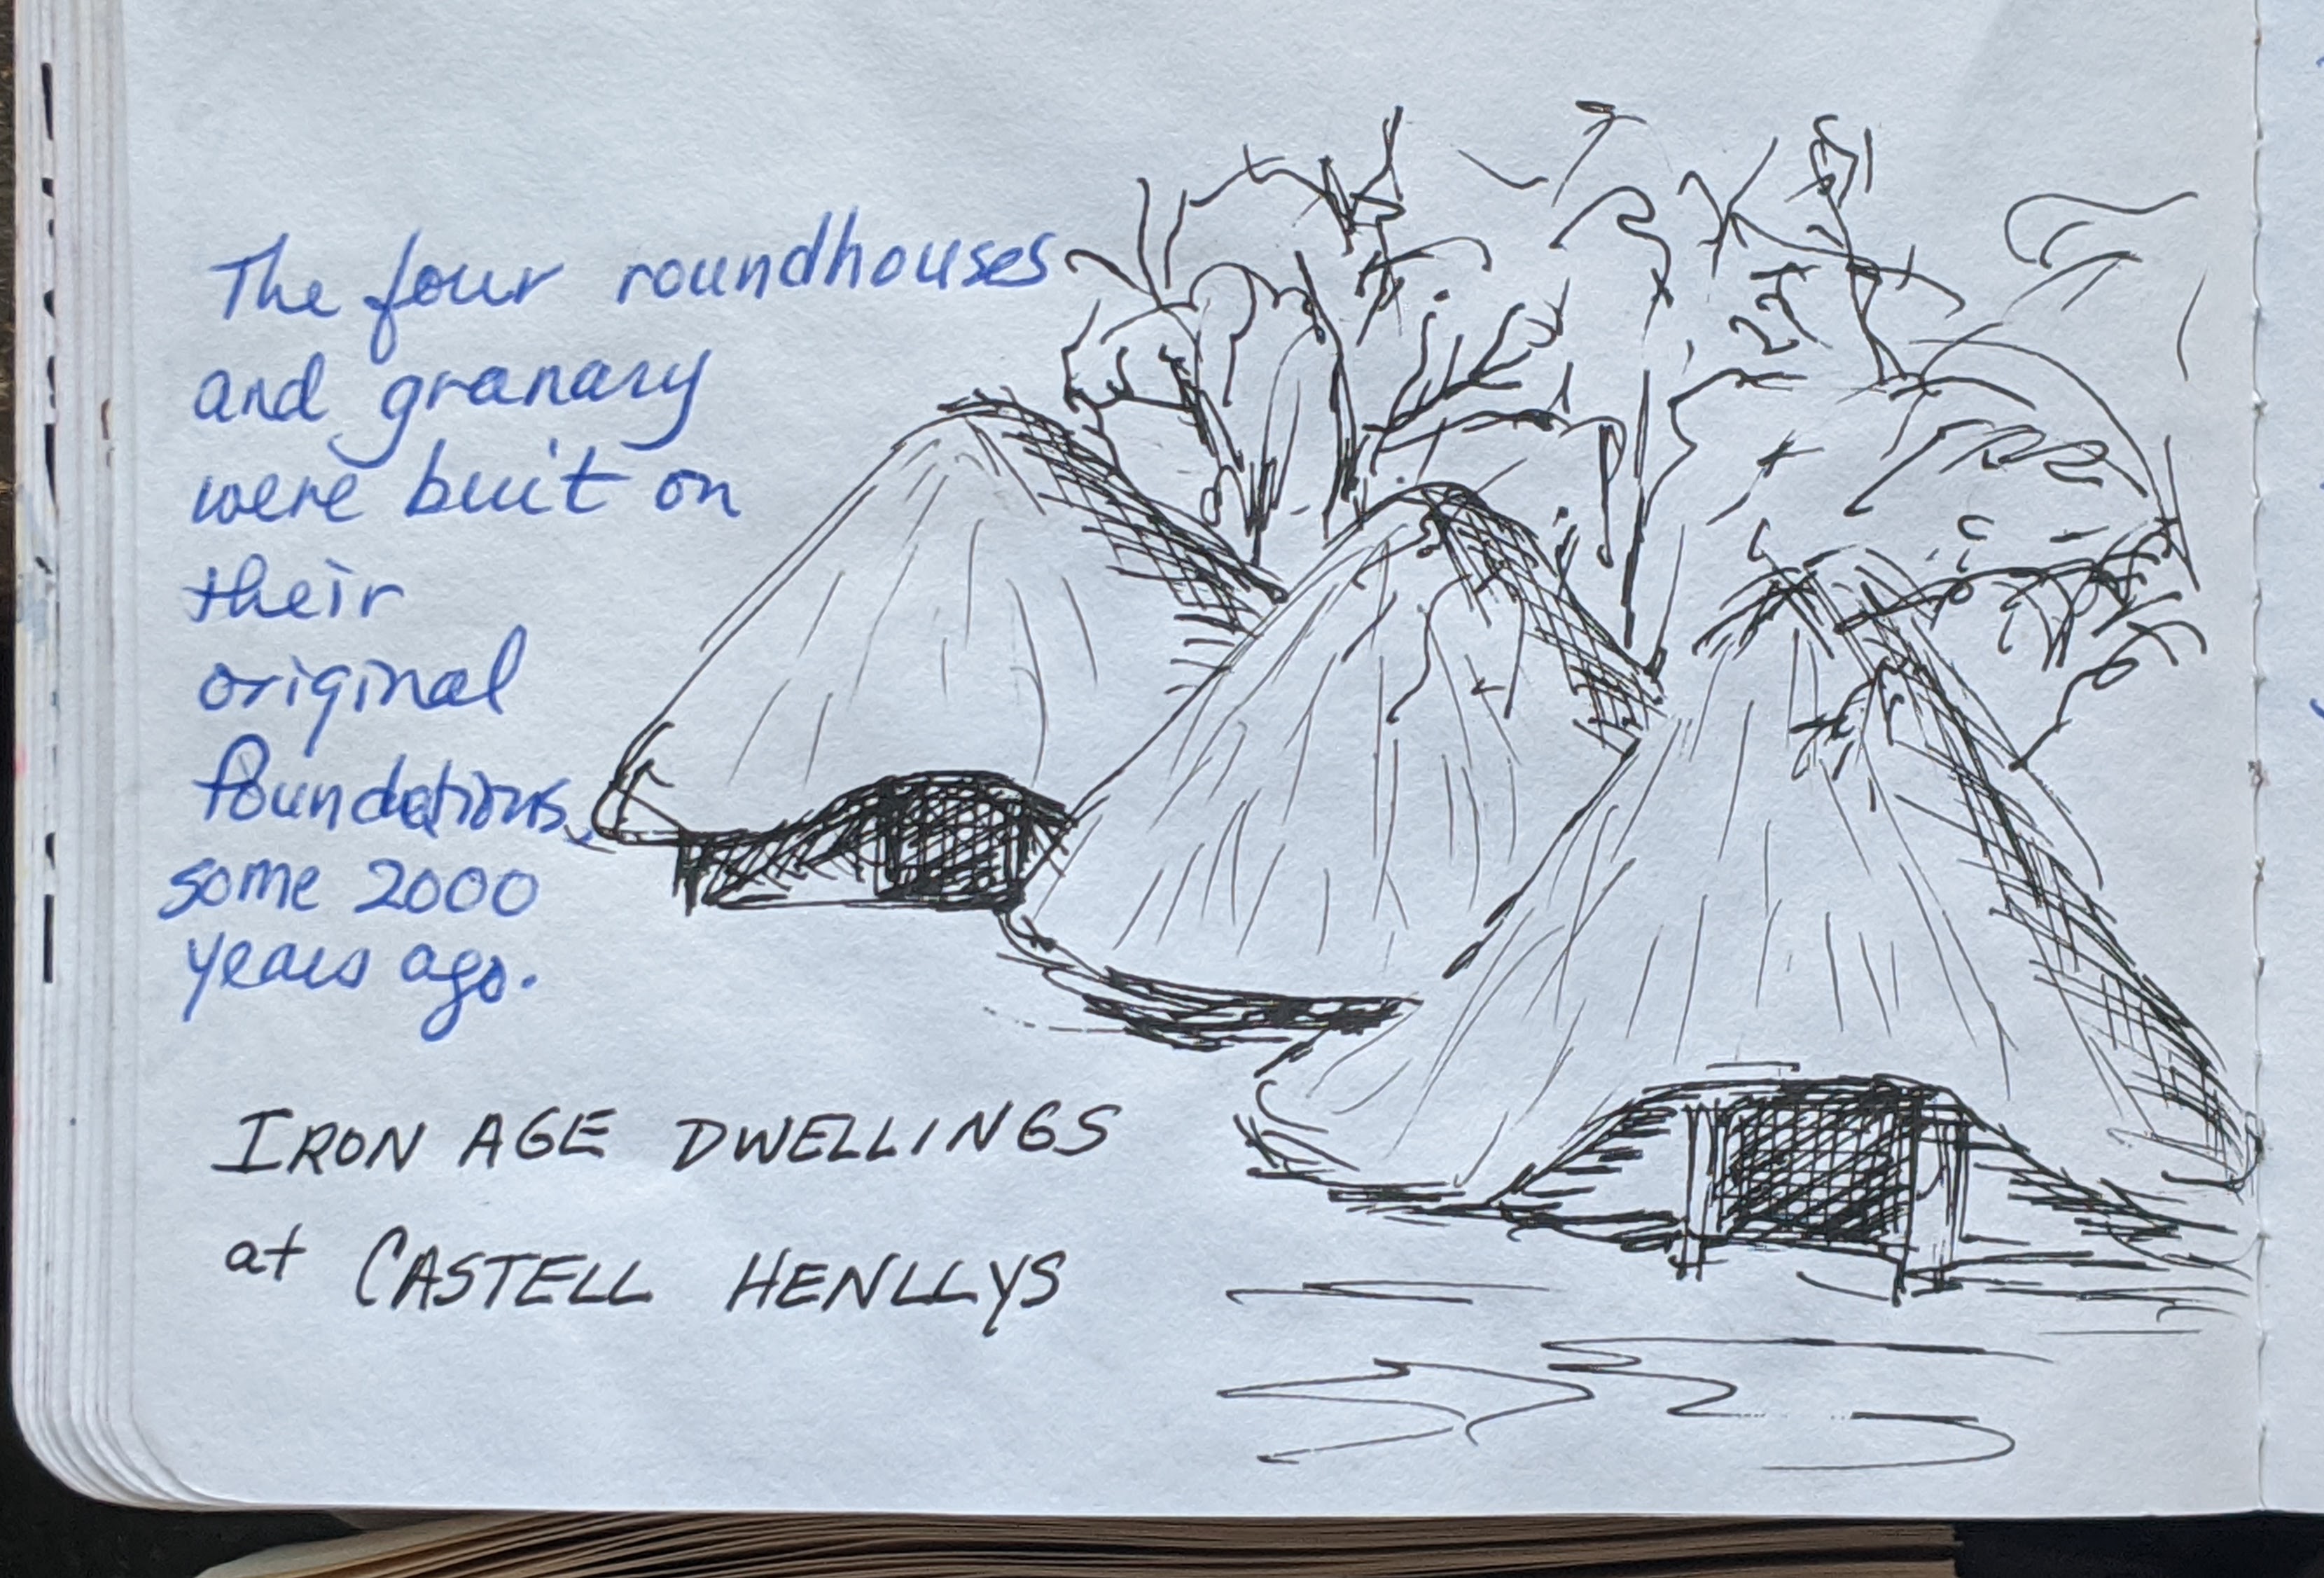 The four roundhouses
and granary
were built on
their
original
foundations,
some 2000
years ago.
IRON AGE DWELLINGS
at CASTELL HENLLYS